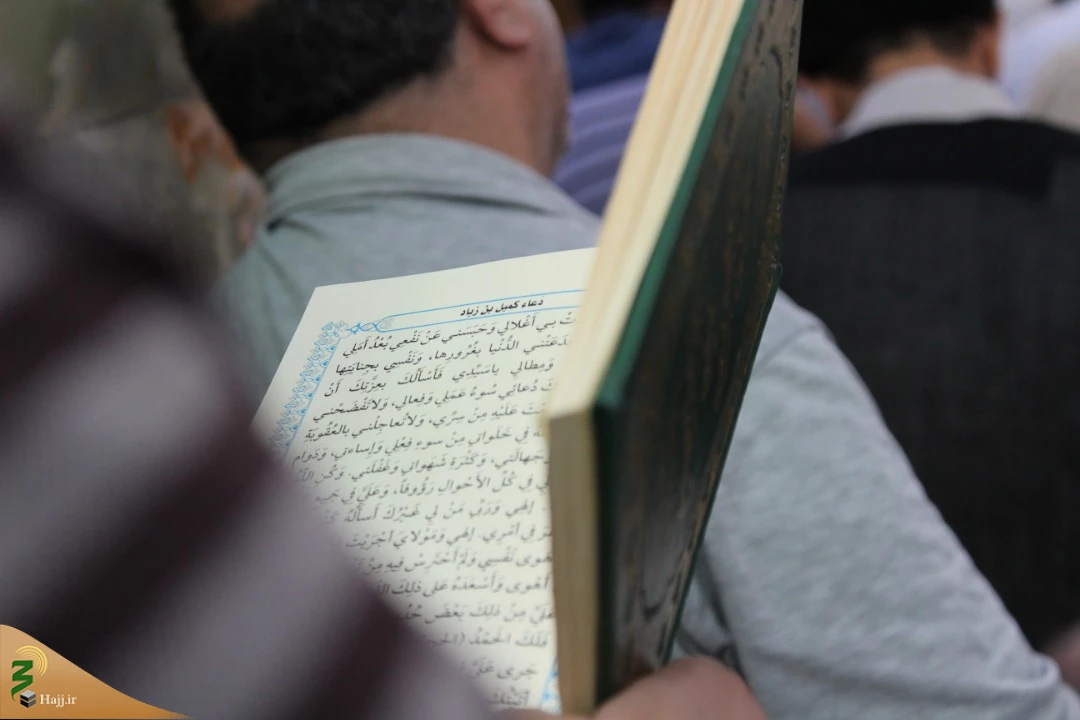 دعاء كميل بن زياد
بي أَغْلالي وَحَبَسَني عَنْ نَفْعي بُعْدُ أَمَلي
الدُّنْيا بِغُرُورِها، وَنَفْسي بِجِنايَتِها
وَمِطالي ياسَيِّدي فَأَسْأَلُكَ بِعِزَّتِكَ أَنْ
دُعائي سُوءُ عَمَلي وَفِعالي، وَلاتَفْضَحْني
عَلَيْهِ مِنْ سِرّي، وَلاتُعاجِلْني بِالعُقُوبَةِ
في خَلَواتي مِنْ سوءِ فِعْلي وَإساءتي، وَدَوامِ
وَكَثْرَةِ شَهَواتي وَغَفْلَتي. وَكُنِ
في كُلِّ الأَحْوالِ رَؤُوفاً، وَعَلَيَّ في
إلهي وَرَبّي مَنْ لي غَيْرُكَ أَسْأَلُهُ
في أَمْري. إلهي وَمَوْلايَ أَجْرَيْتَ
نَفْسي وَلَمْ أَحْتَرِسْ فيهِ مِنْ
أَهْوى وَأَسْعَدَهُ عَلى ذلِكَ
مِنْ ذلِكَ بَعْضَ
فَلَكَ الحَمْدُ
جَرى
Hajj.ir